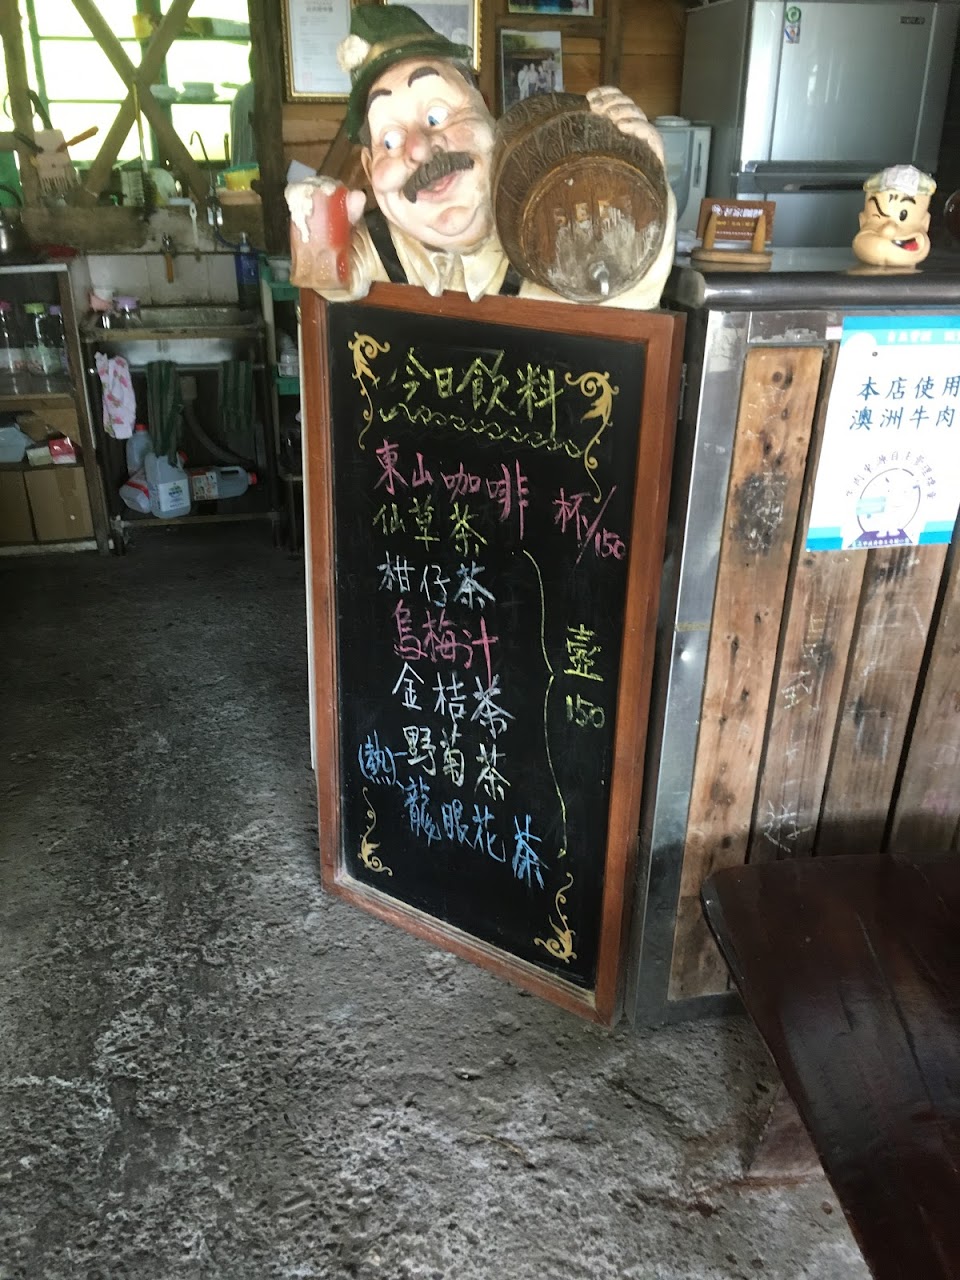 BEER
今日飲料
東山咖啡 杯/150
仙草茶
柑仔茶
烏梅汁
金桔茶
野菊茶
(熱)龍眼花茶
壺
150
本店使用
澳洲牛肉